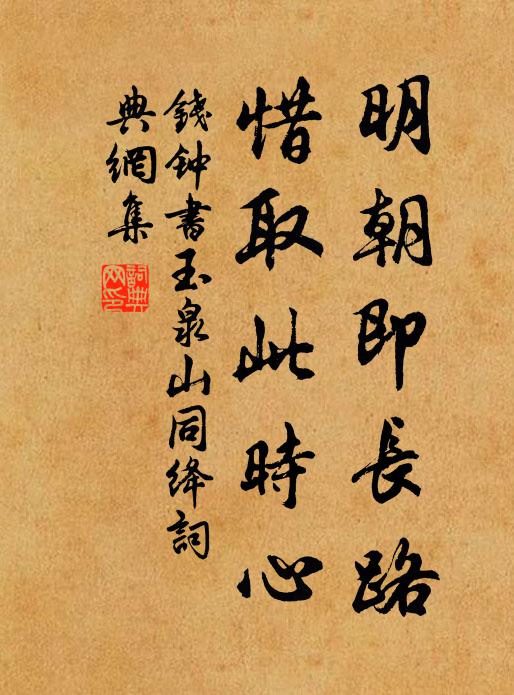 明朝即長路
惜取此時心
錢钟書玉泉山同绛詞
典網集
詞典網印